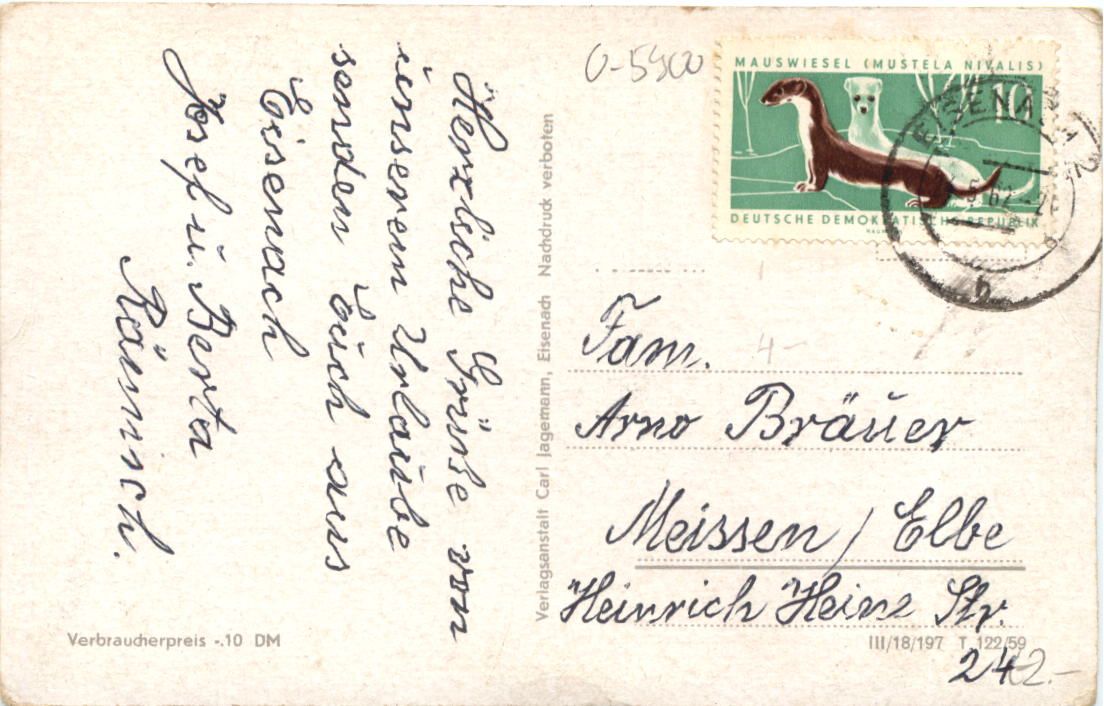 Herzliche Grüße von
unserem Urlaube
senden Euch aus
Eisenach
Josef u. Berta
Rämisch.
Verbraucherpreis -.10 DM
Verlagsanstalt Carl Jagemann, Eisenach Nachdruck verboten
0-5900
MAUSWIESEL (MUSTELA NIVALIS)
10
DEUTSCHE DEMOKRATISCHE REPUBLIK
EISENACH 2
b
4-
Fam.
Arno Bräuer
Meissen / Elbe
Heinrich Heine Str.
III/18/197 T 122/59
24
2.-